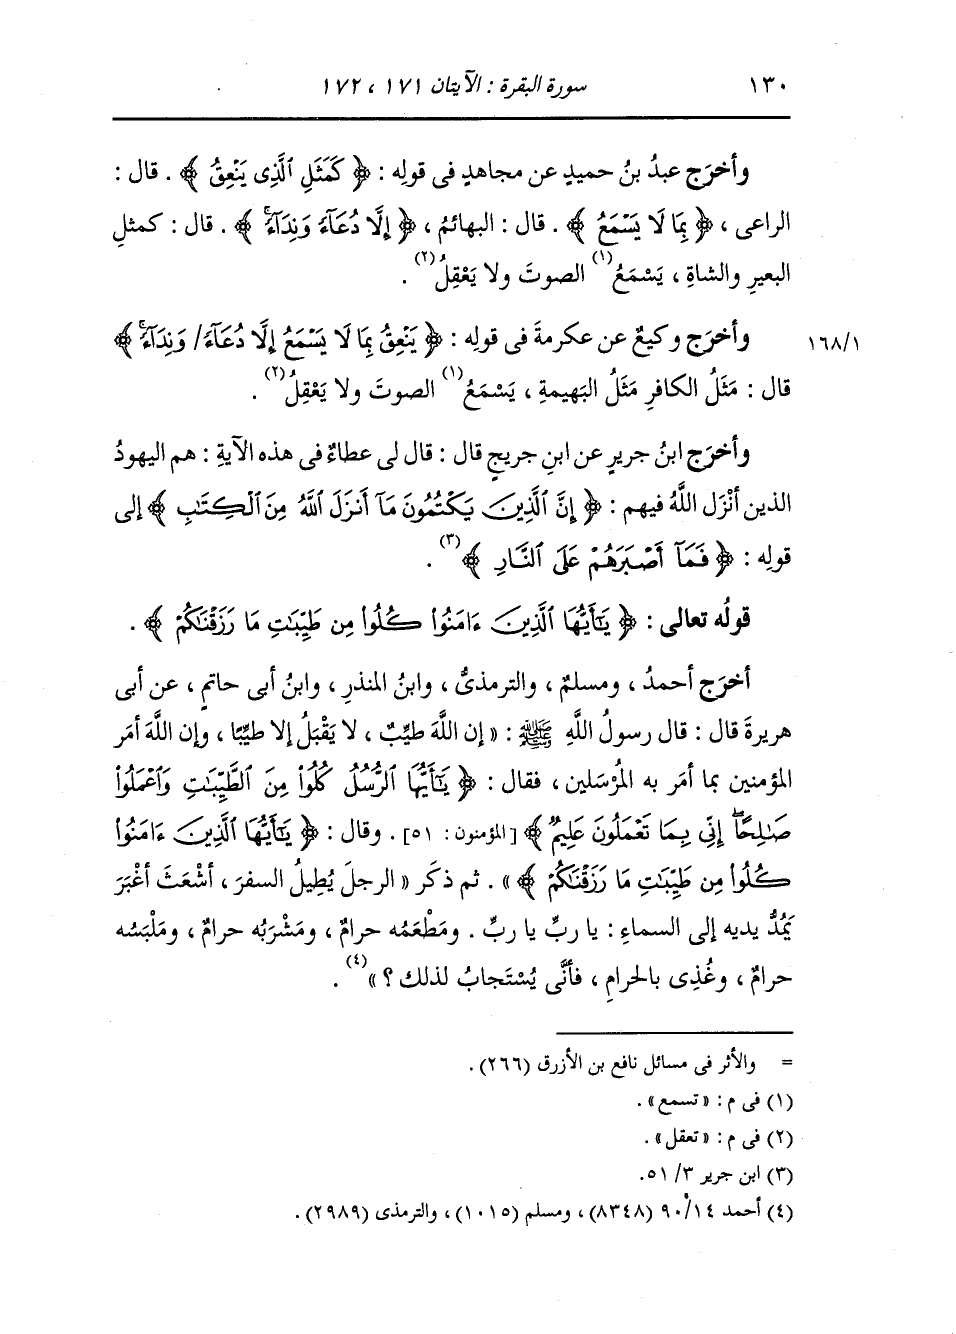 ١٣٠ سورة البقرة : الآيتان ١٧١ ، ١٧٢
وأخرَج عبدُ بنُ حميدٍ عن مجاهدٍ فى قولِه : ﴿ كَمَثَلِ ٱلَّذِى يَنْعِقُ ﴾ . قال :
الراعى ، ﴿ بِمَا لَا يَسْمَعُ ﴾ . قال : البهائمُ ، ﴿ إِلَّا دُعَآءً وَنِدَآءً ﴾ . قال : كمثلِ
البعيرِ والشاةِ ، يَسْمَعُ(١) الصوتَ ولا يَعْقِلُ(٢) .
وأخرَج وكيعٌ عن عكرمةَ فى قولِه : ﴿ يَنْعِقُ بِمَا لَا يَسْمَعُ إِلَّا دُعَآءً/ وَنِدَآءً ﴾ ١٦٨/١
قال : مَثَلُ الكافرِ مَثَلُ البَهيمةِ ، يَسْمَعُ(١) الصوتَ ولا يَعْقِلُ(٢) .
وأخرَج ابنُ جريرٍ عن ابنِ جريجٍ قال : قال لى عطاءٌ فى هذه الآيةِ : هم اليهودُ
الذين أنْزَل اللَّهُ فيهم : ﴿ إِنَّ ٱلَّذِينَ يَكْتُمُونَ مَآ أَنزَلَ ٱللَّهُ مِنَ ٱلْكِتَٰبِ ﴾ إلى
قولِه : ﴿ فَمَآ أَصْبَرَهُمْ عَلَى ٱلنَّارِ ﴾(٣) .
قولُه تعالى : ﴿ يَٰٓأَيُّهَا ٱلَّذِينَ ءَامَنُوا۟ كُلُوا۟ مِن طَيِّبَٰتِ مَا رَزَقْنَٰكُمْ ﴾ .
أخرَج أحمدُ ، ومسلمٌ ، والترمذىُّ ، وابنُ المنذرِ ، وابنُ أبى حاتمٍ ، عن أبى
هريرةَ قال : قال رسولُ اللَّهِ ﷺ : « إن اللَّهَ طيِّبٌ ، لا يَقْبَلُ إلا طيِّبًا ، وإن اللَّهَ أمَر
المؤمنين بما أمَر به المُرْسَلين ، فقال : ﴿ يَٰٓأَيُّهَا ٱلرُّسُلُ كُلُوا۟ مِنَ ٱلطَّيِّبَٰتِ وَٱعْمَلُوا۟
صَٰلِحًا ۖ إِنِّى بِمَا تَعْمَلُونَ عَلِيمٌ ﴾ [المؤمنون: ٥١] . وقال : ﴿ يَٰٓأَيُّهَا ٱلَّذِينَ ءَامَنُوا۟
كُلُوا۟ مِن طَيِّبَٰتِ مَا رَزَقْنَٰكُمْ ﴾ » . ثم ذكَر « الرجلَ يُطِيلُ السفرَ ، أشْعَثَ أغْبَرَ
يَمُدُّ يديه إلى السماءِ : يا ربِّ يا ربِّ . ومَطْعَمُه حرامٌ ، ومَشْرَبُه حرامٌ ، ومَلْبَسُه
حرامٌ ، وغُذِى بالحرامِ ، فأنَّى يُسْتَجابُ لذلك ؟ »(٤) .
= والأثر فى مسائل نافع بن الأزرق (٢٦٦) .
(١) فى م : « تسمع» .
(٢) فى م : « تعقل» .
(٣) ابن جرير ٣/ ٥١.
(٤) أحمد ٩٠/١٤ (٨٣٤٨)، ومسلم (١٠١٥)، والترمذى (٢٩٨٩) .